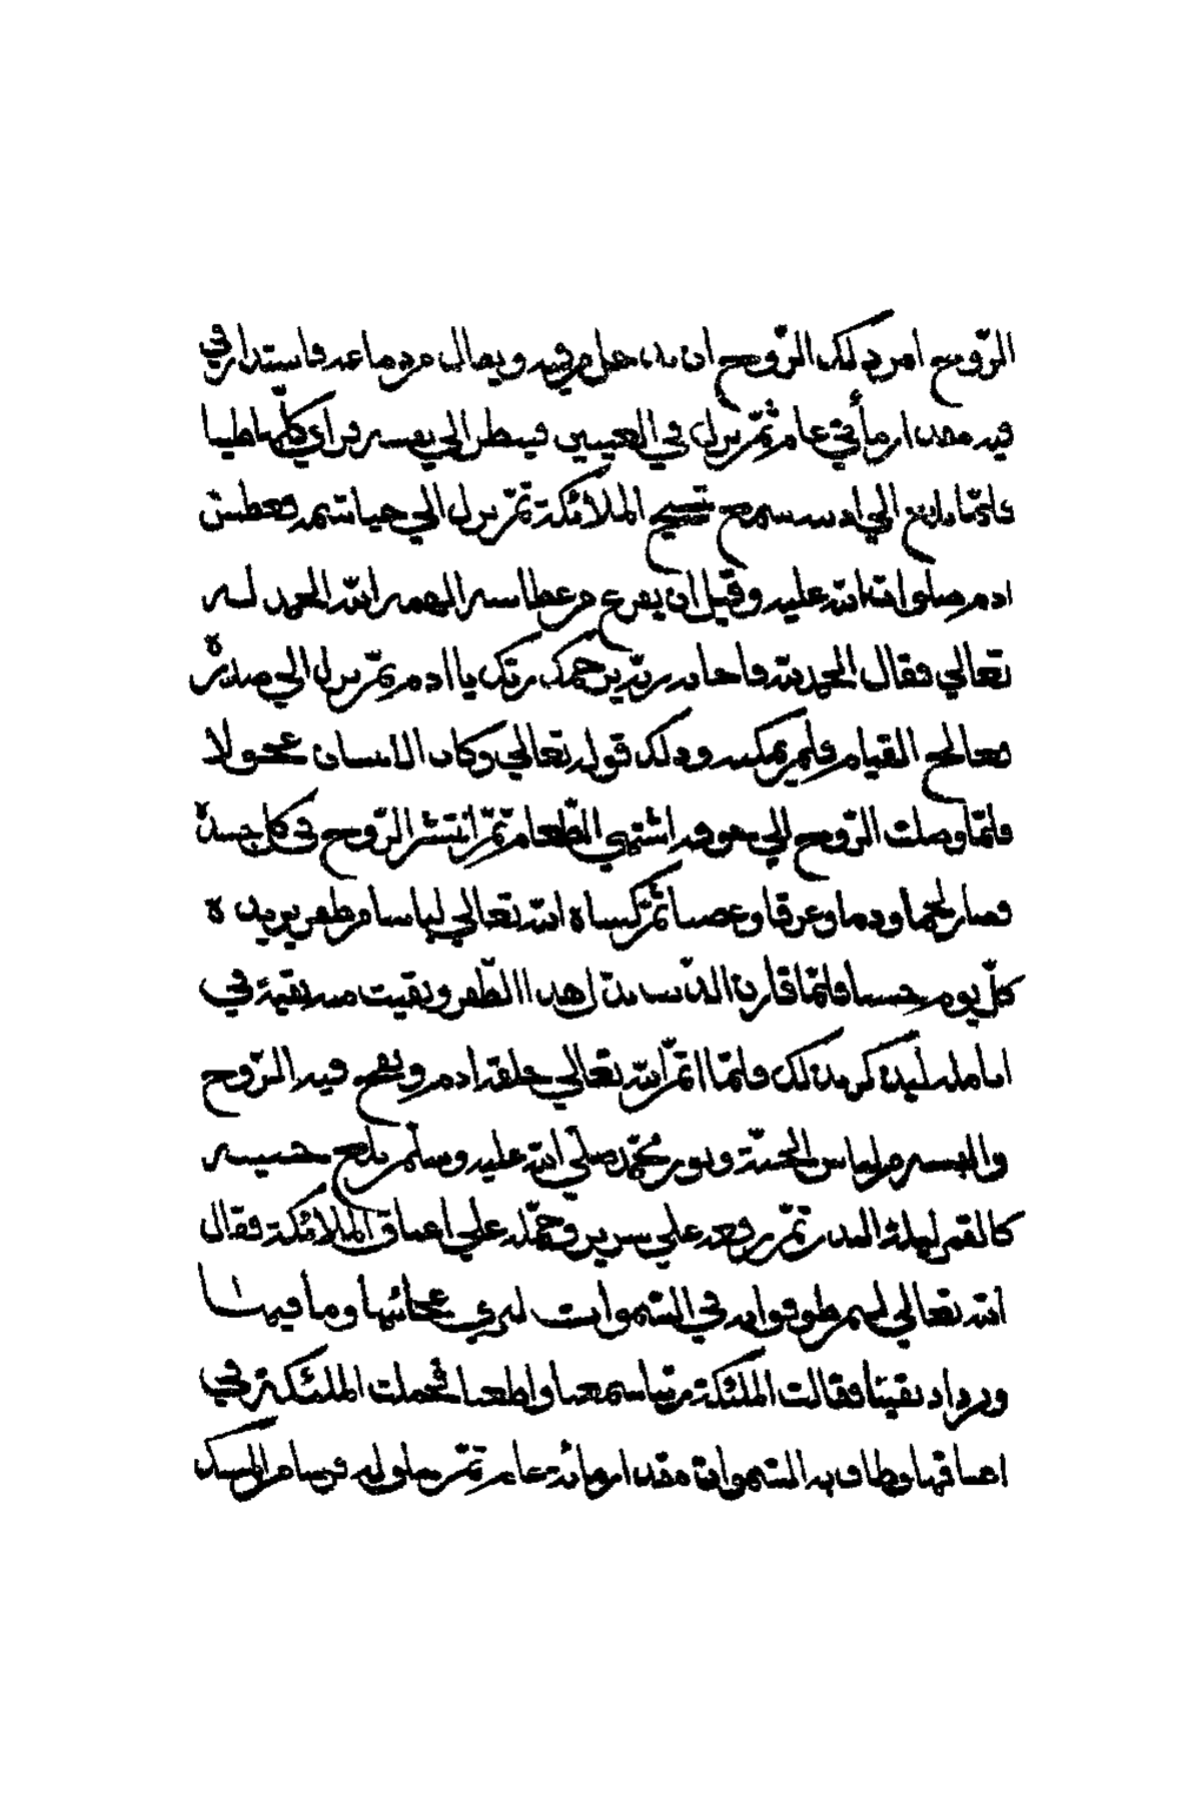 الرّوح امر ذلك الرّوح ان يدخل من فيه ويقال من دماغه فاستدار في
فيه مقدار مأتي عام ثمّ نزل في العينين فينظر الي نفسه فراي كلّها طينا
فلمّا بلغ الي اذنيه سمع تسبيح الملائكة ثمّ نزل الي خياشمه فعطش
ادم صلوات الله عليه وقبل ان يفرغ من عطاسه الهمه الله الحمد له
تعالي فقال الحمد لله فاجابه ربّه يرحمك ربّك يا ادم ثمّ نزل الي صدره
فعالج القيام فلم يمكنه وذلك قوله تعالي وكان الانسان عجولا
فلمّا وصلت الرّوح الي جوفه اشتهي الطّعام ثمّ انتشر الرّوح في كل جسده
فصار لحما ودما وعرقا وعصبا ثمّ كساه الله تعالي لباسا من ظفر يزيده
كلّ يوم حسنا فلمّا قارن الذّنب بدّل هذا الظّفر وبقيت منه بقيّة في
انامله ليتذكر بذلك فلمّا اتمّ الله تعالي خلقة ادم ونفخ فيه الرّوح
والبسه من لباس الجنّة ونور محمّد صلّي الله عليه وسلّم يلمع جبينه
كالقمر ليلة البدر ثمّ رفعه علي سرير وحمّله علي اعناق الملائكة فقال
الله تعالي لهم طوفوا به في السّموات ليري عجائبها وما فيها
ويزداد يقينا فقالت الملئكة ربّنا سمعنا واطعنا فحملت الملئكة في
اعناقها وطاف به السّموات مقدار مائة عام ثمّ خلق له فرسا من المسك